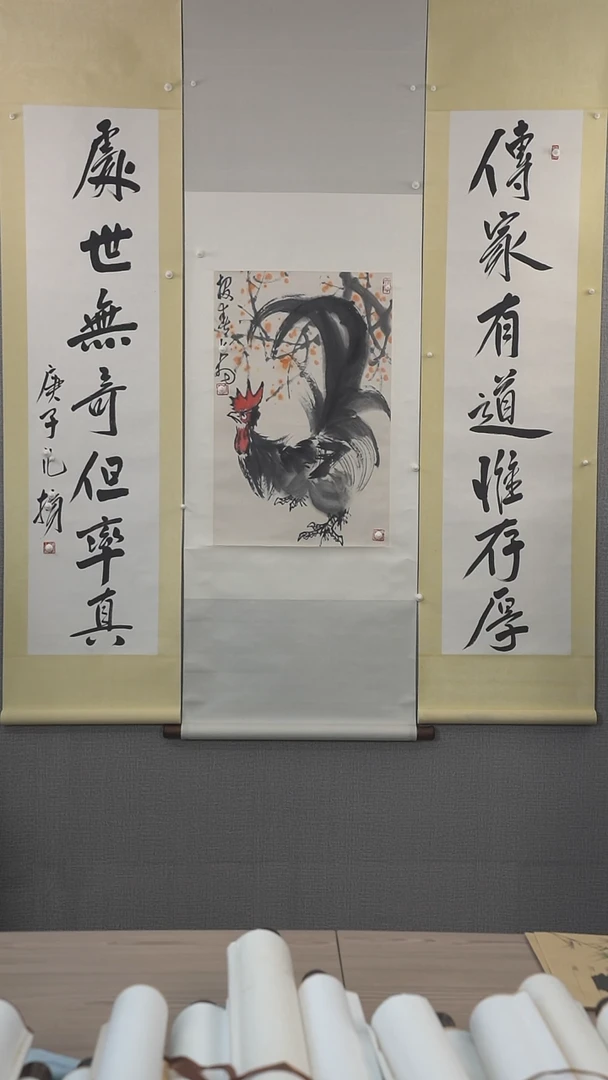 傳家有道惟存厚
處世無奇但率真
庚子